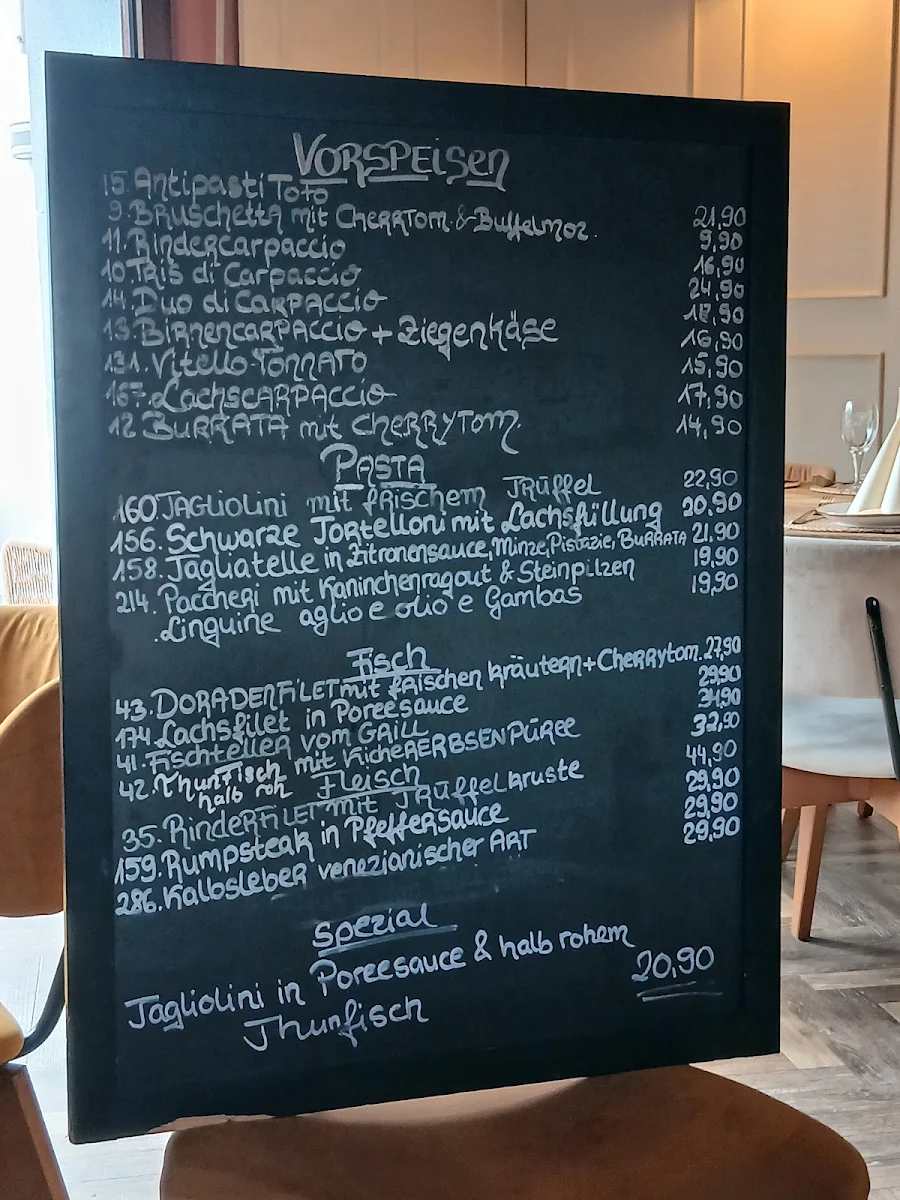 VORSPEISEN
15. Antipasti Toto 21,90
9. Bruschetta mit CHERRTOM. & Buffelmoz. 9,90
11. Rindercarpaccio 16,90
10. Tris di Carpaccio 24,90
14. Duo di CARPACCIO 18,90
13. BIRNENCARPACCIO + Ziegenkäse 16,90
131. Vitello TONNATO 15,90
167. LachsCARPACCIO 17,90
12 BURRATA mit CHERRYTOM. 14,90
PASTA
160 TAGLIOLINI mit frischem TRÜffel 22,90
156. Schwarze Tortelloni mit Lachsfüllung 20,90
158. Tagliatelle in Zitronensauce, Minze, Pistazie, BURRATA 21,90
214. Paccheri mit Kaninchenragout & Steinpilzen 19,90
. Linguine aglio e olio e Gambas 19,90
Fisch
43. DORADENFILET mit frischen kräutern + Cherrytom. 27,90
174. Lachsfilet in Poreesauce 29,90
41. Fischteller vom GRILL 34,90
42. Thunfisch halb roh mit KichERERBSENPüree 32,90
Fleisch
35. RINDERFILET mit TRüffelkruste 44,90
159. Rumpsteak in Pfeffersauce 29,90
286. Kalbsleber venezianischer ART 29,90
29,90
Spezial
Tagliolini in Poreesauce & halb rohem 20,90
Thunfisch